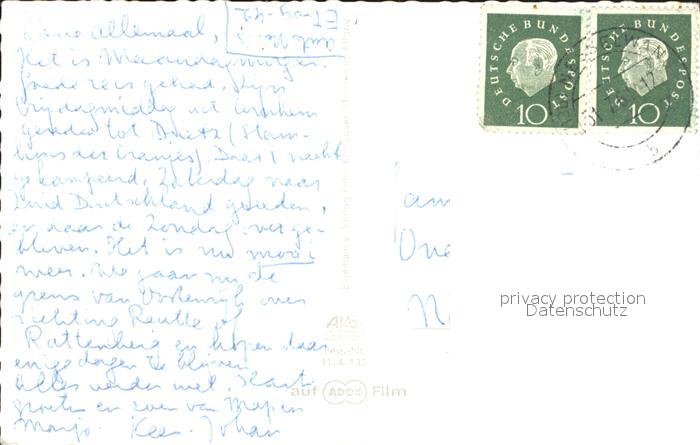 allemaal,
Het is Maandagmorgen.
Goede reis gehad. Zijn
vrijdagmiddag uit
gereden tot Dietz (Stam-
huis der Oranjes). Daar 1 nacht
gekampeerd. Zaterdag naar
Zuid Duitschland gereden,
en daar de Zondag overge-
bleven. Het is nu mooi
weer. We gaan nu de
grens van Oostenrijk over
richting Reutte of
Rattenberg en hopen daar
enige dagen te blijven
Alles verder wel. Hart.
groeten en zoen van Map en
Marijo. Kees. Johan
ET-09-42
DEUTSCHE BUNDESPOST
10
DEUTSCHE BUNDESPOST
10
Fam
One
N
AKO
Best.-Nr.
11.4.132
auf ADOX Film
privacy protection
Datenschutz